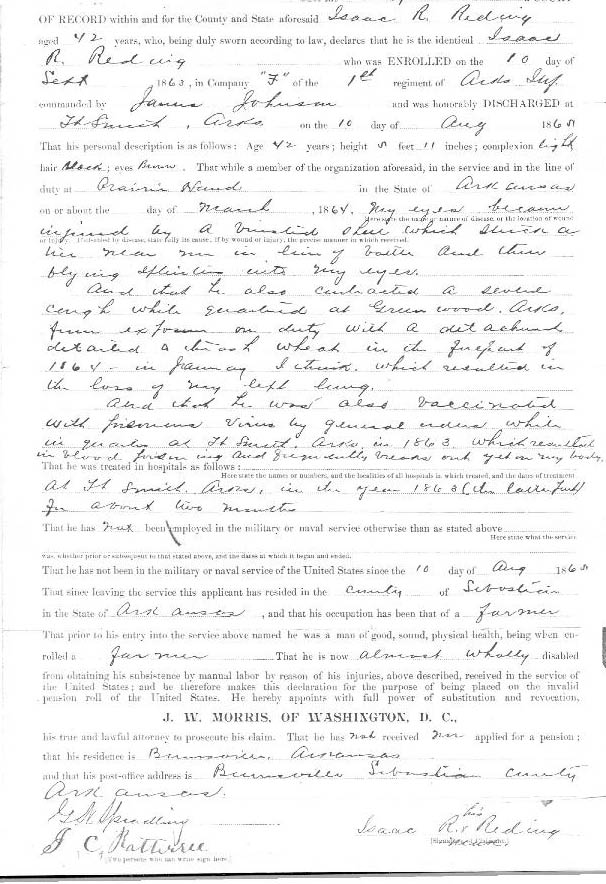 OF RECORD within and for the County and State aforesaid Isaac R. Reding
aged 42 years, who, being duly sworn according to law, declares that he is the identical Isaac
R. Reding who was ENROLLED on the 10 day of
Sept 1863, in Company "F" of the 1st regiment of Arks Inf.
commanded by James Johnson and was honorably DISCHARGED at
Ft Smith, Arks. on the 10 day of Aug 1865
That his personal description is as follows: Age 42 years; height 5 feet 11 inches; complexion light
hair Black; eyes Brown. That while a member of the organization aforesaid, in the service and in the line of
duty at Prairie in the State of Arkansas
on or about the day of March, 1864, My eyes became
Here state the name or nature of disease, or the location of wound
injured by A shell which struck a
or injury. If disabled by disease, state fully its cause; if by wound or injury, the precise manner in which received.
near me in line of battle And
into my eyes.
And that he also contracted A severe
cough while quartered at Greenwood, Arks,
from exposure on duty with A detachment
detailed to thrash wheat in the forepart of
1864 - in January I think. which resulted in
the loss of my left lung.
And that he was also Vaccinated
with poisonous Virus by general orders while
in quarters at Ft Smith, Arks, in 1863. which resulted
in blood poisoning And frequently breaks out yet on my body.
That he was treated in hospitals as follows:
Here state the names or numbers, and the localities of all hospitals in which treated, and the dates of treatment.
At Ft Smith, Arks, in the year 1863 (the latter part)
for about two months
That he has not been employed in the military or naval service otherwise than as stated above
Here state what the service
was, whether prior or subsequent to that stated above, and the dates at which it began and ended.
That he has not been in the military or naval service of the United States since the 10 day of Aug 1865
That since leaving the service this applicant has resided in the County of Sebastian
in the State of Arkansas, and that his occupation has been that of a farmer
That prior to his entry into the service above named he was a man of good, sound, physical health, being when en-
rolled a farmer That he is now almost wholly disabled
from obtaining his subsistence by manual labor by reason of his injuries, above described, received in the service of
the United States; and he therefore makes this declaration for the purpose of being placed on the invalid
pension roll of the United States. He hereby appoints with full power of substitution and revocation,
J. W. MORRIS, OF WASHINGTON, D. C.,
his true and lawful attorney to prosecute his claim. That he has not received nor applied for a pension;
that his residence is Burnsville, Arkansas
and that his post-office address is Burnsville Sebastian County
Arkansas.
Spradling
his
Isaac R. x Reding
mark
(Two persons who can write sign here.)